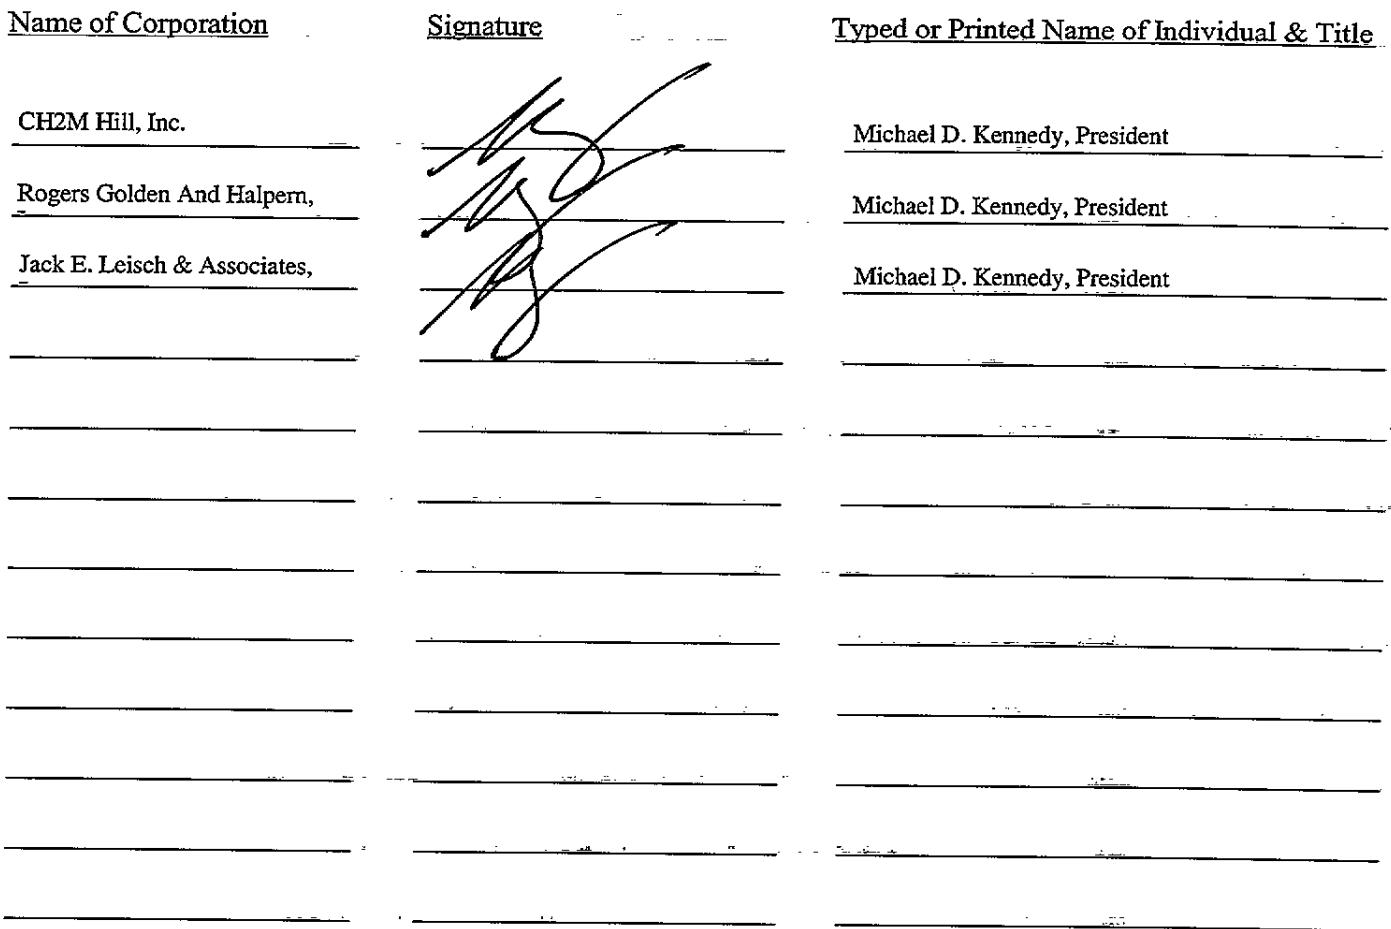 Name of Corporation Signature Typed or Printed Name of Individual & Title
CH2M Hill, Inc. Michael D. Kennedy, President
Rogers Golden And Halpern, Michael D. Kennedy, President
Jack E. Leisch & Associates, Michael D. Kennedy, President